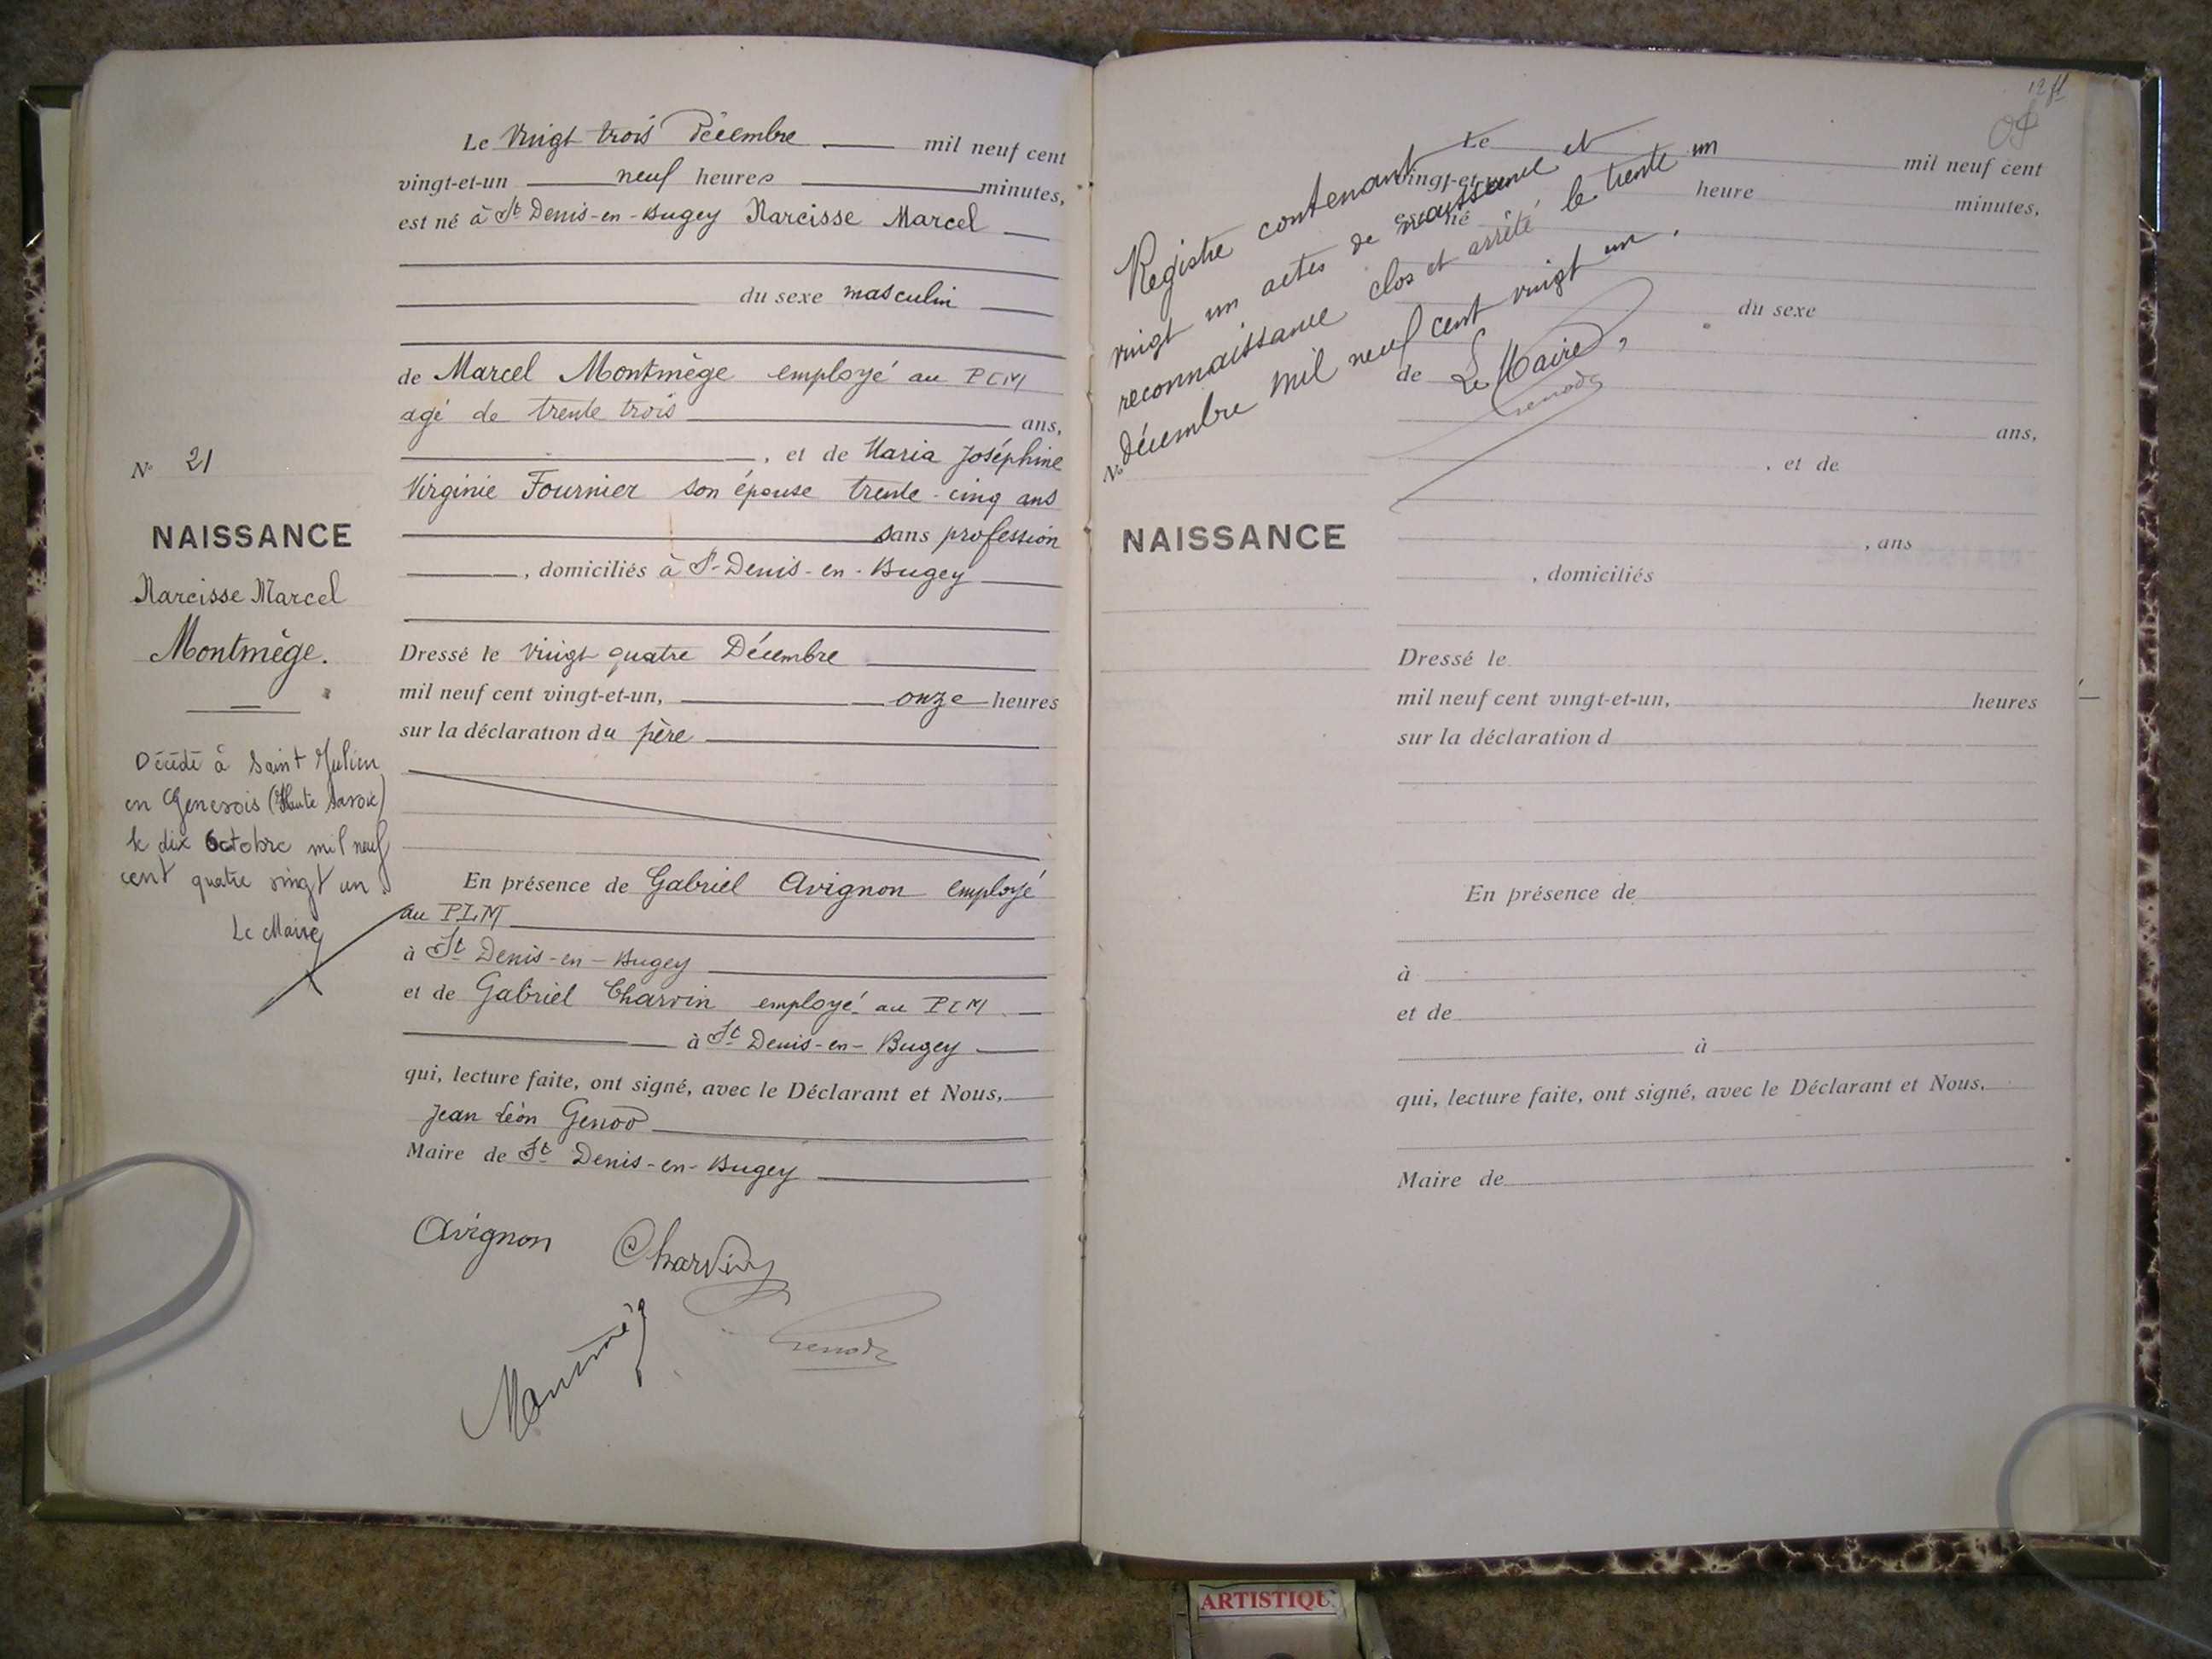 Le Vingt trois Décembre mil neuf cent
vingt-et-un neuf heures minutes,
est né à St Denis-en-Bugey Narcisse Marcel
du sexe masculin
de Marcel Montmège employé au PLM
agé de trente trois ans,
, et de Maria Joséphine
Virginie Fournier son épouse trente-cinq ans
sans profession
, domiciliés à St-Denis-en-Bugey
Dressé le vingt quatre Décembre
mil neuf cent vingt-et-un, onze heures
sur la déclaration du père
En présence de Gabriel Avignon employé
au PLM
à St Denis-en-Bugey
et de Gabriel Charvin employé au PLM
à St Denis-en-Bugey
qui, lecture faite, ont signé, avec le Déclarant et Nous,
Jean Léon Genod
Maire de St Denis-en-Bugey
Avignon Charvin
Genod
N° 21
NAISSANCE
Narcisse Marcel
Montmège.
Décédé à Saint Julien
en Genevois (Haute Savoie)
le dix Octobre mil neuf
cent quatre vingt un
Le Maire
12
Registre contenant
vingt un actes de naissance et
reconnaissance clos et arrêté le trente un
décembre mil neuf cent vingt un.
Le Maire,
Genod
Le mil neuf cent
vingt-et-un heure minutes,
est né
du sexe
de
ans,
, et de
, ans
, domiciliés
N°
NAISSANCE
Dressé le
mil neuf cent vingt-et-un, heures
sur la déclaration d
En présence de
à
et de
à
qui, lecture faite, ont signé, avec le Déclarant et Nous,
Maire de
ARTISTIQU